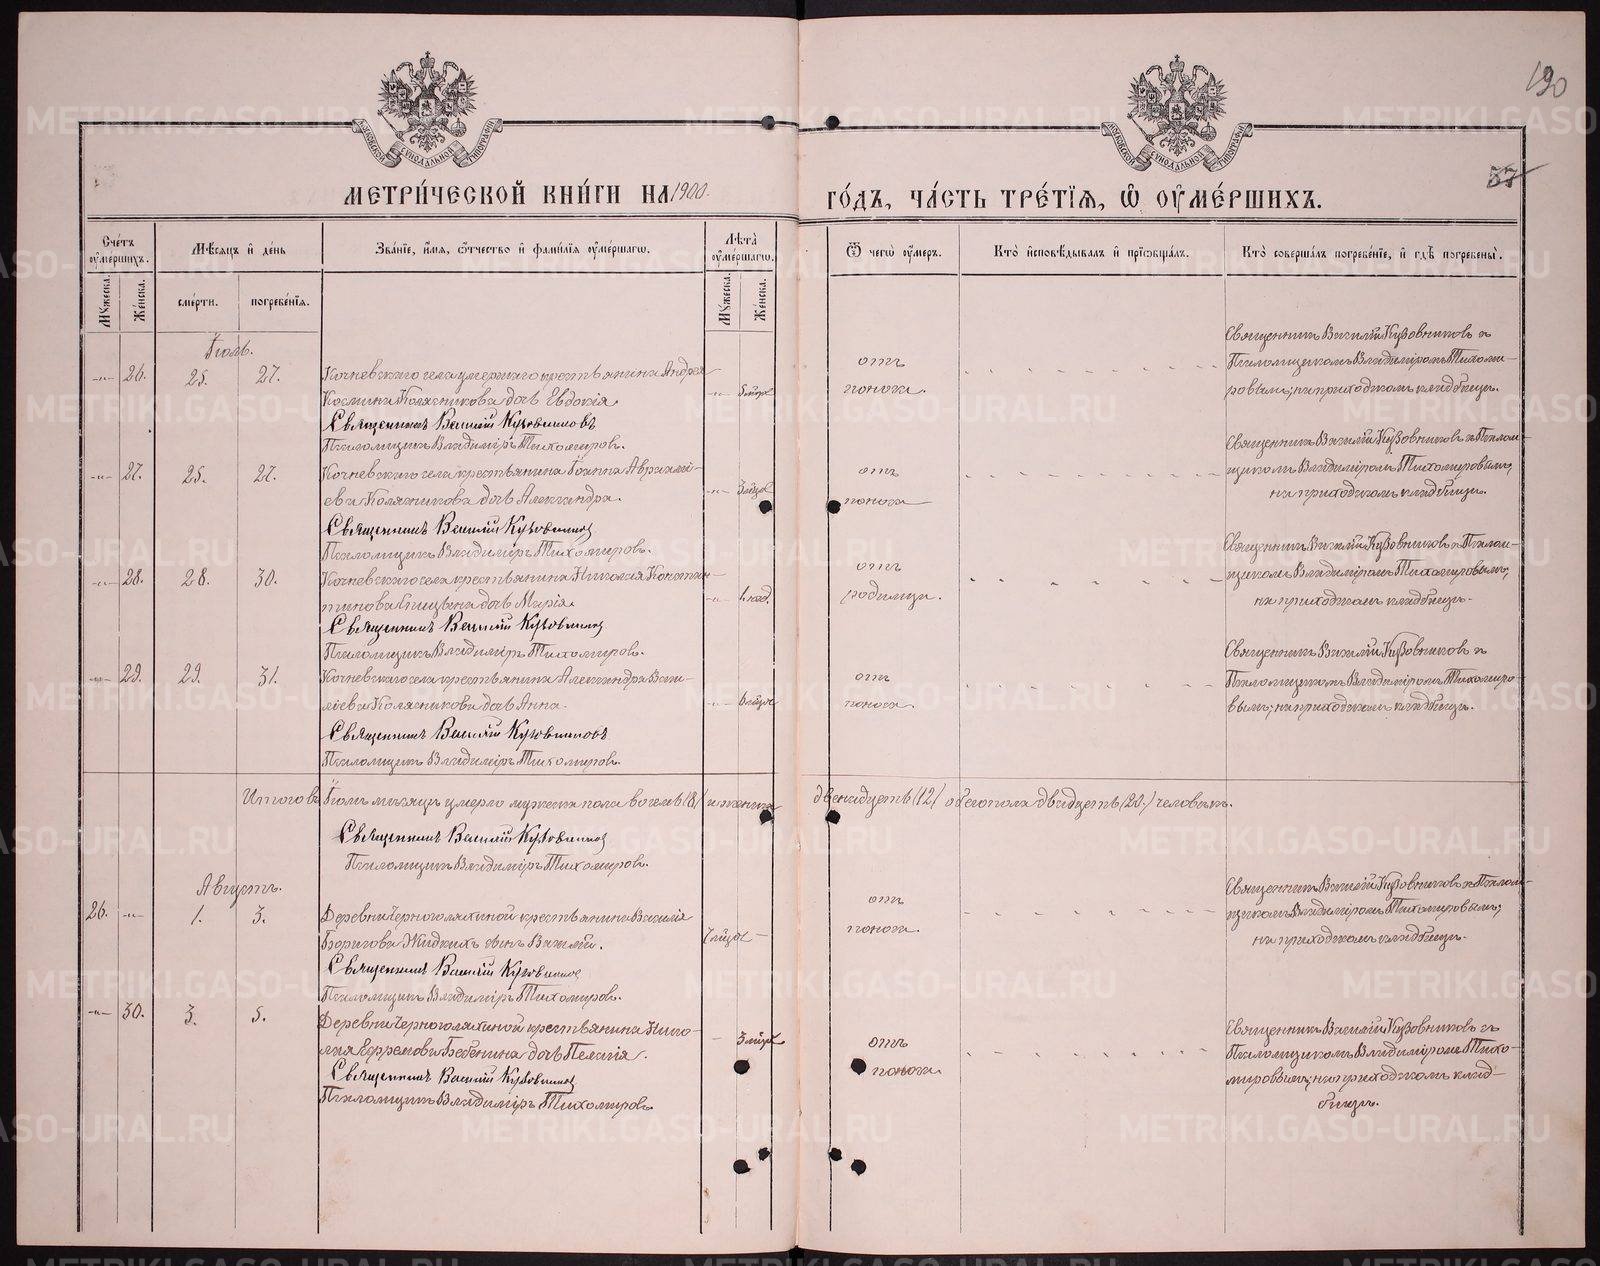 190
57
МОСКОВСКОЙ СѴНОДАЛЬНОЙ ТИПОГРАФІИ
МОСКОВСКОЙ СѴНОДАЛЬНОЙ ТИПОГРАФІИ
МЕТРИ́ЧЕСКОЙ КНИ́ГИ НА 1900. ГО́ДЪ, ЧА́СТЬ ТРЕ́ТЇѦ, Ѡ҆ ОУ҆МЕ́РШИХЪ.
Сче́тъ оу҆ме́ршихъ.
Мꙋ́жеска.
Же́нска.
Мѣ́сѧцъ и҆ де́нь
сме́рти.
погребе́нїѧ.
Зва́нїе, и҆́мѧ, ѻ҆́тчество и҆ фами́лїѧ оу҆ме́ршагѡ.
Лѣ́та̀ оу҆ме́ршагѡ.
Мꙋ́жеска.
Же́нска.
Ѿ чегѡ̀ оу҆́меръ.
Кто̀ и҆сповѣ́дывалъ и҆ прїѡбща́лъ.
Кто̀ соверша́лъ погребе́нїе, и҆ гдѣ̀ погребены̀.
Іюль.
-"- 26. 25. 27. Кочневскаго села умершаго крестьянина Андрея
Космина Колясникова дочь Евдокія.
Священникъ Василій Кузовниковъ
Псаломщикъ Владиміръ Тихомировъ.
отъ
поноса.
Священникъ Василій Кузовниковъ съ
Псаломщикомъ Владиміромъ Тихоми-
ровымъ; на приходскомъ кладбищѣ.
-"- 27. 25. 27. Кочневскаго села крестьянина Іоанна Авраамі-
ева Колясникова дочь Александра.
-"- 3 мѣся
Священникъ Василій Кузовников
Псаломщикъ Владиміръ Тихомировъ.
отъ
поноса
Священникъ Василій Кузовниковъ съ Псалом-
щикомъ Владиміромъ Тихомировымъ;
на приходскомъ кладбищѣ.
-"- 28. 28. 30. Кочневскаго села крестьянина Николая Констан-
тинова дочь Марія.
-"- 1. нед.
Священникъ Василій Кузовников
Псаломщикъ Владиміръ Тихомировъ.
отъ
родимца.
Священникъ Василій Кузовниковъ съ Псалом-
щикомъ Владиміромъ Тихомировымъ;
на приходскомъ кладбищѣ.
-"- 29. 29. 31. Кочневскаго села крестьянина Александра Васи-
ліева Колясникова дочь Анна.
-"- 6 мѣся
Священникъ Василій Кузовниковъ
Псаломщикъ Владиміръ Тихомировъ.
отъ
поноса.
Священникъ Василій Кузовниковъ съ
Псаломщикомъ Владиміромъ Тихомиро-
вымъ; на приходскомъ кладбищѣ.
Итого въ Іюль мѣсяцъ умерло мужеска пола восемь (8) и женска двенадцать (12) обоего пола двадцать (20.) человѣкъ.
Священникъ Василій Кузовников
Псаломщикъ Владиміръ Тихомировъ.
Августъ.
26. -"- 1. 3. Деревни Черноголякиной крестьянина Василія
Борисова Жидкихъ сынъ Василій.
7 мѣся -
Священникъ Василій Кузовников
Псаломщикъ Владиміръ Тихомировъ.
отъ
поноса.
Священникъ Василій Кузовниковъ съ Псалом-
щикомъ Владиміромъ Тихомировымъ;
на приходскомъ кладбищѣ.
-"- 30. 3. 5. Деревни Черноголякиной крестьянина Нико-
лая Ефремова Бабенина дочь Пелагія.
- 3 мѣся
Священникъ Василій Кузовников
Псаломщикъ Владиміръ Тихомировъ.
отъ
поноса.
Священникъ Василій Кузовниковъ съ
Псаломщикомъ Владиміромъ Тихо-
мировымъ; на приходскомъ клад-
бищѣ.
METRIKI.GASO-URAL.RU